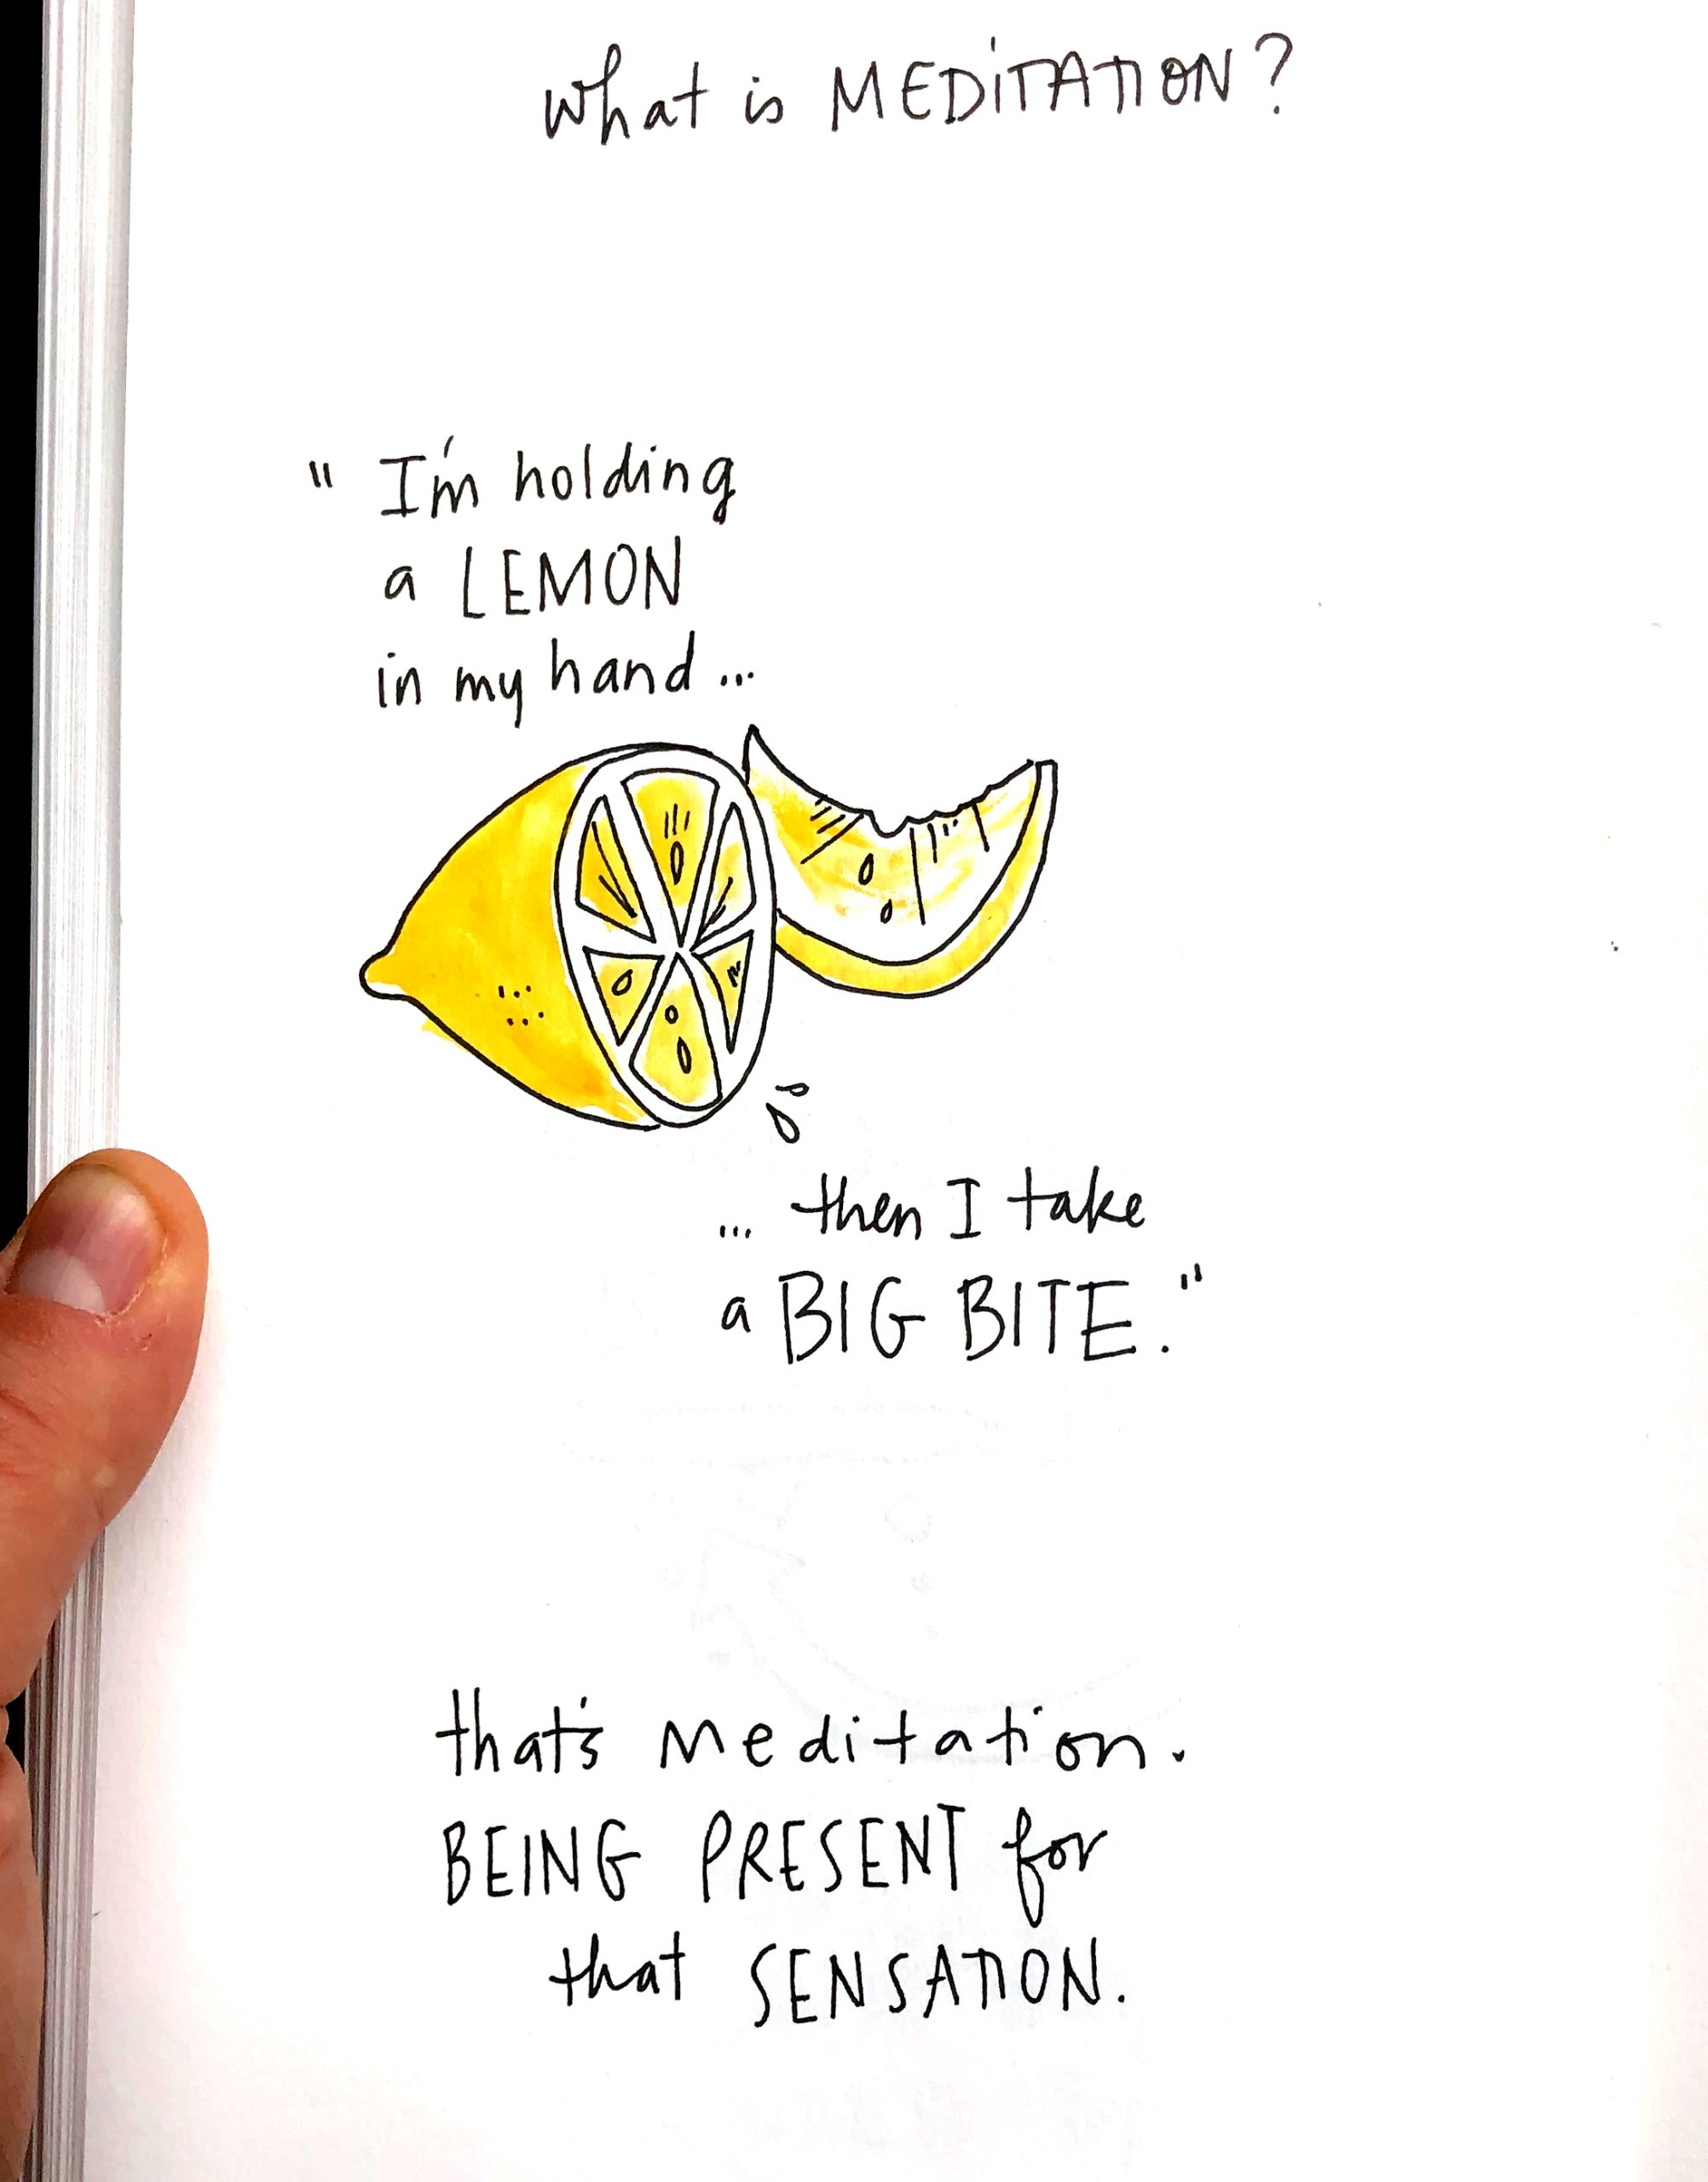 what is MEDITATION?
"I'm holding
a LEMON
in my hand...
... then I take
a BIG BITE."
that's meditation.
BEING PRESENT for
that SENSATION.